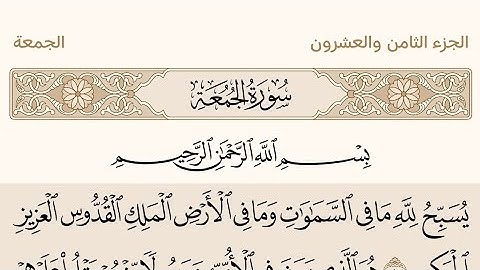 الجزء الثامن والعشرون
الجمعة
سُورَةُ الجُمُعَةِ
بِسْمِ اللَّهِ الرَّحْمَٰنِ الرَّحِيمِ
يُسَبِّحُ لِلَّهِ مَا فِي السَّمَاوَاتِ وَمَا فِي الْأَرْضِ الْمَلِكِ الْقُدُّوسِ الْعَزِيزِ